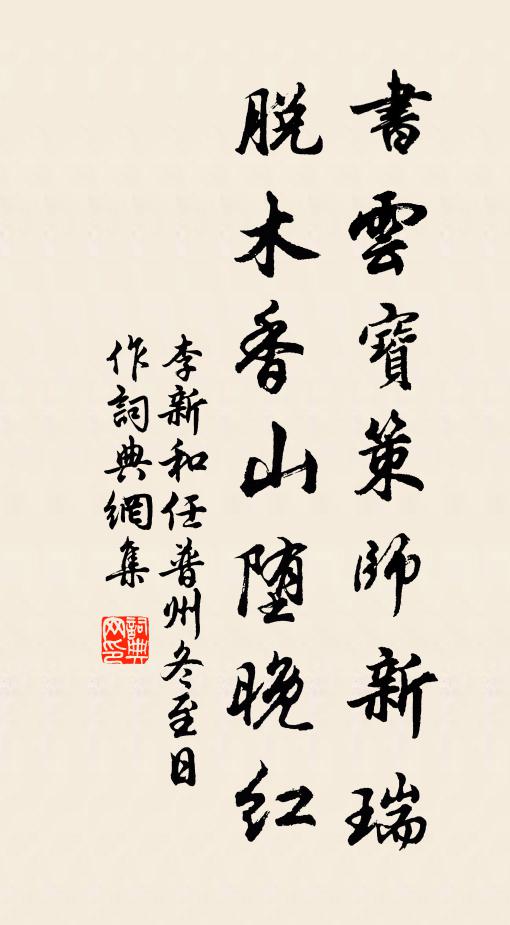 書雲寶策師新瑞
脱木香山墮晚紅
李新和任普州冬至日
作詞典網集
詞典
网印